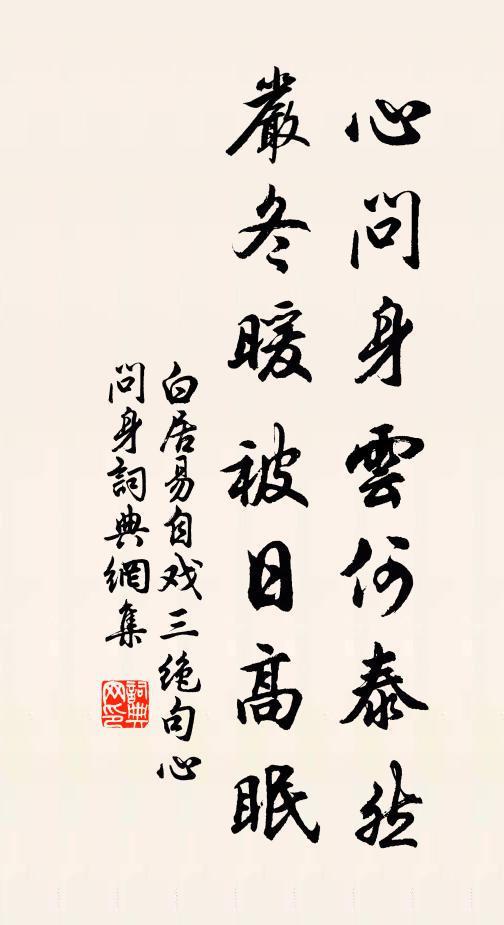 心問身雲何泰然
嚴冬暖被日高眠
白居易自戏三绝句心
問身詞典網集
詞典
网印